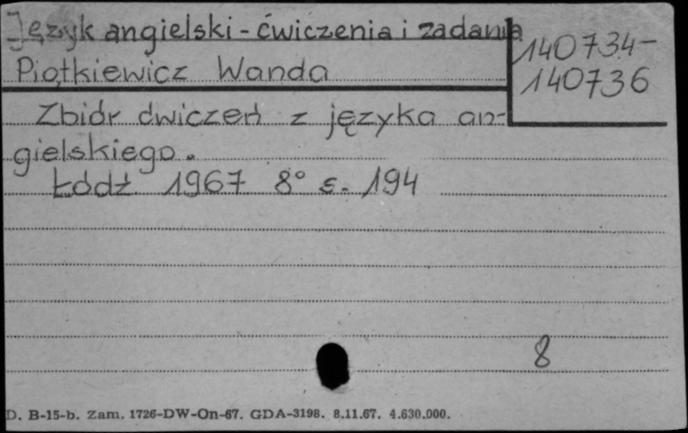 Język angielski - ćwiczenia i zadania
140734-
140736
Piotkiewicz Wanda
Zbiór ćwiczeń z języka an-
gielskiego.
Łódź 1967 8° s. 194
8
D. B-15-b. Zam. 1726-DW-On-67. GDA-3198. 8.11.67. 4.630.000.